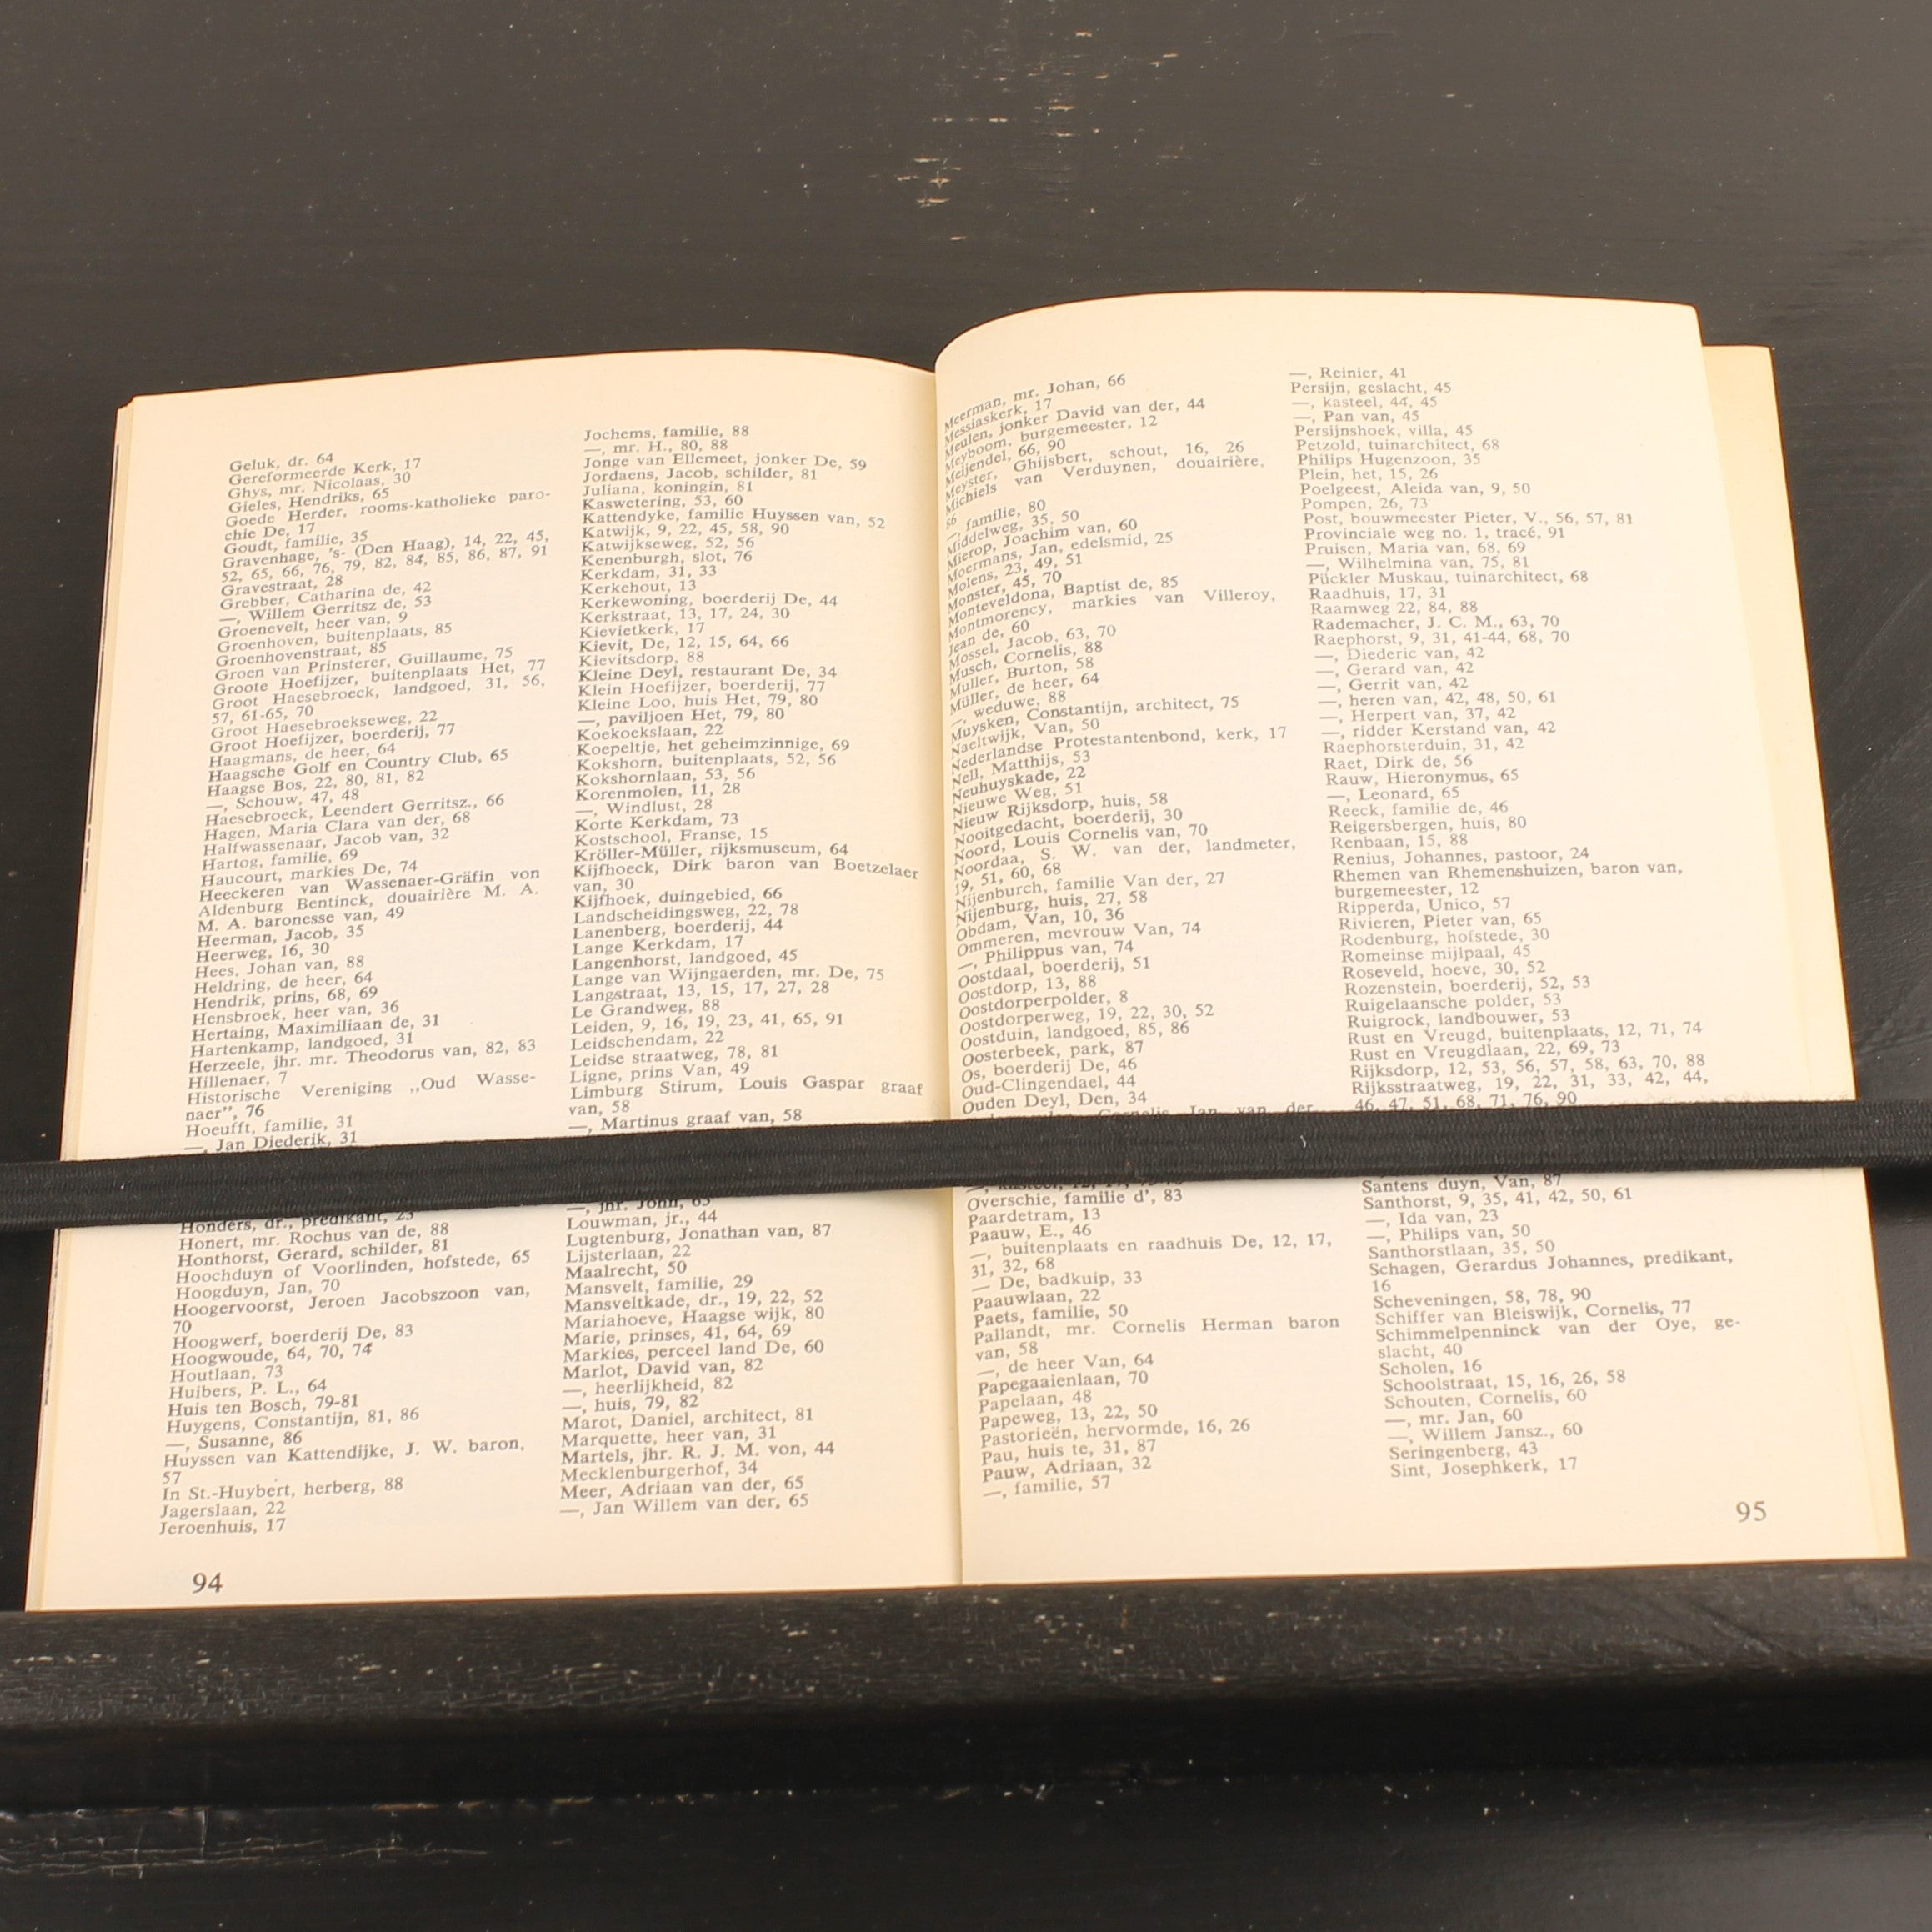 Geluk, dr. 64
Gereformeerde Kerk, 17
Ghys, mr. Nicolaas, 30
Gieles, Hendriks, 65
Goede Herder, rooms-katholieke paro-
chie De, 17
Goudt, familie, 35
Gravenhage, 's- (Den Haag), 14, 22, 45,
52, 65, 66, 76, 79, 82, 84, 85, 86, 87, 91
Gravestraat, 28
Grebber, Catharina de, 42
—, Willem Gerritsz de, 53
Groenevelt, heer van, 9
Groenhoven, buitenplaats, 85
Groenhovenstraat, 85
Groen van Prinsterer, Guillaume, 75
Groote Hoefijzer, buitenplaats Het, 77
Groot Haesebroeck, landgoed, 31, 56,
57, 61-65, 70
Groot Haesebroekseweg, 22
Groot Hoefijzer, boerderij, 77
Haagmans, de heer, 64
Haagsche Golf en Country Club, 65
Haagse Bos, 22, 80, 81, 82
—, Schouw, 47, 48
Haesebroeck, Leendert Gerritsz., 66
Hagen, Maria Clara van der, 68
Halfwassenaar, Jacob van, 32
Hartog, familie, 69
Haucourt, markies De, 74
Heeckeren van Wassenaer-Gräfin von
Aldenburg Bentinck, douairière M. A.
M. A. baronesse van, 49
Heerman, Jacob, 35
Heerweg, 16, 30
Hees, Johan van, 88
Heldring, de heer, 64
Hendrik, prins, 68, 69
Hensbroek, heer van, 36
Hertaing, Maximiliaan de, 31
Hartenkamp, landgoed, 31
Herzeele, jhr. mr. Theodorus van, 82, 83
Hillenaer, 7
Historische Vereniging „Oud Wasse-
naer”, 76
Hoeufft, familie, 31
—, Jan Diederik, 31
Honders, dr., predikant, 23
Honert, mr. Rochus van de, 88
Honthorst, Gerard, schilder, 81
Hoochduyn of Voorlinden, hofstede, 65
Hoogduyn, Jan, 70
Hoogervoorst, Jeroen Jacobszoon van,
70
Hoogwerf, boerderij De, 83
Hoogwoude, 64, 70, 74
Houtlaan, 73
Huibers, P. L., 64
Huis ten Bosch, 79-81
Huygens, Constantijn, 81, 86
—, Susanne, 86
Huyssen van Kattendijke, J. W. baron,
57
In St.-Huybert, herberg, 88
Jagerslaan, 22
Jeroenhuis, 17
94
Jochems, familie, 88
—, mr. H., 80, 88
Jonge van Ellemeet, jonker De, 59
Jordaens, Jacob, schilder, 81
Juliana, koningin, 81
Kaswetering, 53, 60
Kattendyke, familie Huyssen van, 52
Katwijk, 9, 22, 45, 58, 90
Katwijkseweg, 52, 56
Kenenburgh, slot, 76
Kerkdam, 31, 33
Kerkehout, 13
Kerkewoning, boerderij De, 44
Kerkstraat, 13, 17, 24, 30
Kievietkerk, 17
Kievit, De, 12, 15, 64, 66
Kievitsdorp, 88
Kleine Deyl, restaurant De, 34
Klein Hoefijzer, boerderij, 77
Kleine Loo, huis Het, 79, 80
—, paviljoen Het, 79, 80
Koekoekslaan, 22
Koepeltje, het geheimzinnige, 69
Kokshorn, buitenplaats, 52, 56
Kokshornlaan, 53, 56
Korenmolen, 11, 28
—, Windlust, 28
Korte Kerkdam, 73
Kostschool, Franse, 15
Kröller-Müller, rijksmuseum, 64
Kijfhoeck, Dirk baron van Boetzelaer
van, 30
Kijfhoek, duingebied, 66
Landscheidingsweg, 22, 78
Lanenberg, boerderij, 44
Lange Kerkdam, 17
Langenhorst, landgoed, 45
Lange van Wijngaerden, mr. De, 75
Langstraat, 13, 15, 17, 27, 28
Le Grandweg, 88
Leiden, 9, 16, 19, 23, 41, 65, 91
Leidschendam, 22
Leidse straatweg, 78, 81
Ligne, prins Van, 49
Limburg Stirum, Louis Gaspar graaf
van, 58
—, Martinus graaf van, 58
—, jhr. John, 65
Louwman, jr., 44
Lugtenburg, Jonathan van, 87
Lijsterlaan, 22
Maalrecht, 50
Mansvelt, familie, 29
Mansveltkade, dr., 19, 22, 52
Mariahoeve, Haagse wijk, 80
Marie, prinses, 41, 64, 69
Markies, perceel land De, 60
Marlot, David van, 82
—, heerlijkheid, 82
—, huis, 79, 82
Marot, Daniel, architect, 81
Marquette, heer van, 31
Martels, jhr. R. J. M. von, 44
Mecklenburgerhof, 34
Meer, Adriaan van der, 65
—, Jan Willem van der, 65
Meerman, mr. Johan, 66
Messiaskerk, 17
Meulen, jonker David van der, 44
Meyboom, burgemeester, 12
Meijendel, 66, 90
Meyster, Ghijsbert, schout, 16, 26
Michiels van Verduynen, douairière,
86
—, familie, 80
Middelweg, 35, 50
Mierop, Joachim van, 60
Moermans, Jan, edelsmid, 25
Molens, 23, 49, 51
Monster, 45, 70
Monteveldona, Baptist de, 85
Montmorency, markies van Villeroy,
Jean de, 60
Mossel, Jacob, 63, 70
Musch, Cornelis, 88
Muller, Burton, 58
Müller, de heer, 64
—, weduwe, 88
Muysken, Constantijn, architect, 75
Naeltwijk, Van, 50
Nederlandse Protestantenbond, kerk, 17
Nell, Matthijs, 53
Neuhuyskade, 22
Nieuwe Weg, 51
Nieuw Rijksdorp, huis, 58
Nooitgedacht, boerderij, 30
Noord, Louis Cornelis van, 70
Noordaa, S. W. van der, landmeter,
19, 51, 60, 68
Nijenburch, familie Van der, 27
Nijenburg, huis, 27, 58
Obdam, Van, 10, 36
Ommeren, mevrouw Van, 74
—, Philippus van, 74
Oostdaal, boerderij, 51
Oostdorp, 13, 88
Oostdorperpolder, 8
Oostdorperweg, 19, 22, 30, 52
Oostduin, landgoed, 85, 86
Oosterbeek, park, 87
Os, boerderij De, 46
Oud-Clingendael, 44
Ouden Deyl, Den, 34
Cornelis Jan van der
—, kasteel, 12, 17,
Overschie, familie d', 83
Paardetram, 13
Paauw, E., 46
—, buitenplaats en raadhuis De, 12, 17,
31, 32, 68
— De, badkuip, 33
Paauwlaan, 22
Paets, familie, 50
Pallandt, mr. Cornelis Herman baron
van, 58
—, de heer Van, 64
Papegaaienlaan, 70
Papelaan, 48
Papeweg, 13, 22, 50
Pastorieën, hervormde, 16, 26
Pau, huis te, 31, 87
Pauw, Adriaan, 32
—, familie, 57
—, Reinier, 41
Persijn, geslacht, 45
—, kasteel, 44, 45
—, Pan van, 45
Persijnshoek, villa, 45
Petzold, tuinarchitect, 68
Philips Hugenzoon, 35
Plein, het, 15, 26
Poelgeest, Aleida van, 9, 50
Pompen, 26, 73
Post, bouwmeester Pieter, V., 56, 57, 81
Provinciale weg no. 1, tracé, 91
Pruisen, Maria van, 68, 69
—, Wilhelmina van, 75, 81
Pückler Muskau, tuinarchitect, 68
Raadhuis, 17, 31
Raamweg 22, 84, 88
Rademacher, J. C. M., 63, 70
Raephorst, 9, 31, 41-44, 68, 70
—, Diederic van, 42
—, Gerard van, 42
—, Gerrit van, 42
—, heren van, 42, 48, 50, 61
—, Herpert van, 37, 42
—, ridder Kerstand van, 42
Raephorsterduin, 31, 42
Raet, Dirk de, 56
Rauw, Hieronymus, 65
—, Leonard, 65
Reeck, familie de, 46
Reigersbergen, huis, 80
Renbaan, 15, 88
Renius, Johannes, pastoor, 24
Rhemen van Rhemenshuizen, baron van,
burgemeester, 12
Ripperda, Unico, 57
Rivieren, Pieter van, 65
Rodenburg, hofstede, 30
Romeinse mijlpaal, 45
Roseveld, hoeve, 30, 52
Rozenstein, boerderij, 52, 53
Ruigelaansche polder, 53
Ruigrock, landbouwer, 53
Rust en Vreugd, buitenplaats, 12, 71, 74
Rust en Vreugdlaan, 22, 69, 73
Rijksdorp, 12, 53, 56, 57, 58, 63, 70, 88
Rijksstraatweg, 19, 22, 31, 33, 42, 44,
46, 47, 51, 68, 71, 76, 90
Santens duyn, Van, 87
Santhorst, 9, 35, 41, 42, 50, 61
—, Ida van, 23
—, Philips van, 50
Santhorstlaan, 35, 50
Schagen, Gerardus Johannes, predikant,
16
Scheveningen, 58, 78, 90
Schiffer van Bleiswijk, Cornelis, 77
Schimmelpenninck van der Oye, ge-
slacht, 40
Scholen, 16
Schoolstraat, 15, 16, 26, 58
Schouten, Cornelis, 60
—, mr. Jan, 60
—, Willem Jansz., 60
Seringenberg, 43
Sint, Josephkerk, 17
95